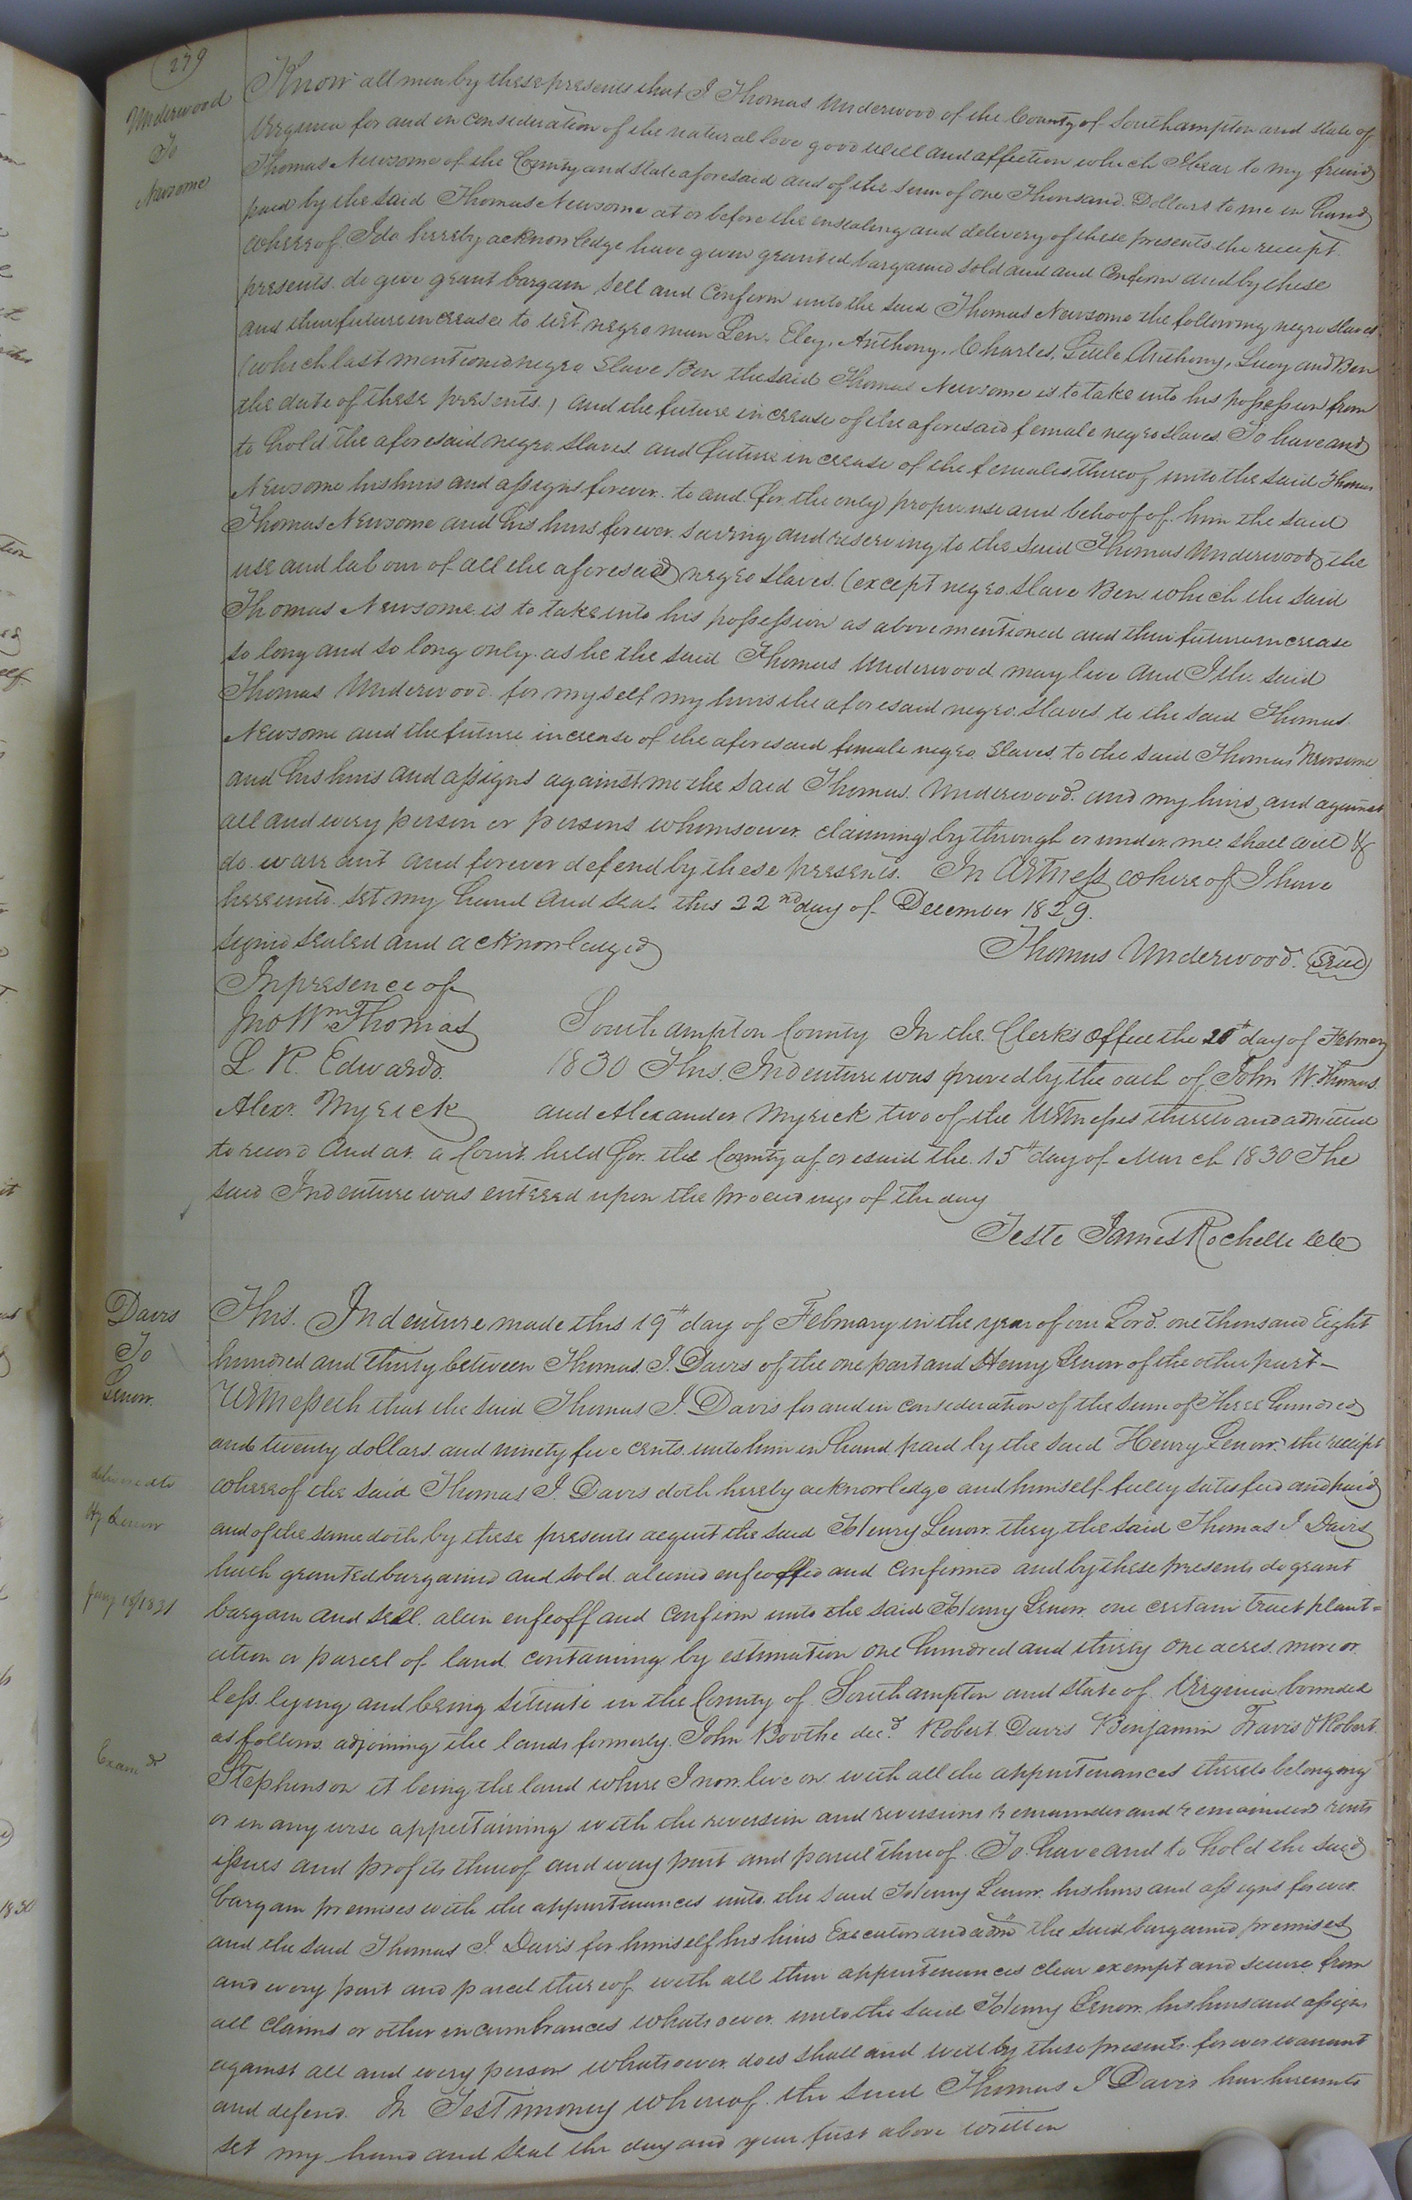 279
Underwood
To
Newsome
Know all men by these presents that I Thomas Underwood of the County of Southampton and state of
Virginia for and in consideration of the natural love good will and affection which I bear to my friend
Thomas Newsome of the County and state aforesaid and of the sum of one Thousand Dollars to me in hand
paid by the said Thomas Newsome at or before the ensealing and delivery of these presents the receipt
whereof I do hereby acknowledge have given granted bargained sold and and Confirm and by these
presents do give grant bargain sell and Confirm unto the said Thomas Newsome the following negro slaves
and their future increase to wit negro man Len, Eley, Anthony, Charles, Little Anthony, Lucy and Ben
(which last mentioned negro Slave Ben the said Thomas Newsome is to take into his possession from
the date of these presents.) and the future increase of the aforesaid female negro slaves To have and
to hold the aforesaid negro slaves and future increase of the females thereof unto the said Thomas
Newsome his heirs and assigns forever to and for the only proper use and behoof of him the said
Thomas Newsome and his heirs forever saving and reserving to the said Thomas Underwood the
use and labour of all the aforesaid negro slaves (except negro slave Ben which the said
Thomas Newsome is to take into his possession as above mentioned and their future increase
so long and so long only as he the said Thomas Underwood may live and I the said
Thomas Underwood for myself my heirs the aforesaid negro slaves to the said Thomas
Newsome and the future increase of the aforesaid female negro slaves to the said Thomas Newsome
and his heirs and assigns against me the said Thomas Underwood and my heirs and against
all and every person or persons whomsoever claiming by through or under me shall will &
do warrant and forever defend by these presents. In Witness whereof I have
hereunto set my hand and seal this 22nd day of December 1829.
signed sealed and acknowledged
Thomas Underwood (Seal)
In presence of
Jno Wm Thomas
L R. Edwards
Alexr Myrick
Southampton County In the Clerk's Office the 20th day of February
1830 This Indenture was proved by the oath of John W. Thomas
and Alexander Myrick two of the Witnesses thereto and admitted
to record And at a Court held for the County aforesaid the 15th day of March 1830 The
said Indenture was entered upon the proceedings of the day
Teste James Rochelle Clk
Davis
To
Lenow.
delivered to
Hy Lenow
Jany 18 1831
Examd
This Indenture made this 19th day of February in the year of our Lord one thousand Eight
hundred and thirty between Thomas J. Davis of the one part and Henry Lenow of the other part –
Witnesseth that the said Thomas J. Davis for and in consideration of the sum of Three hundred
and twenty dollars and ninety five cents unto him in hand paid by the said Henry Lenow the receipt
whereof the said Thomas J. Davis doth hereby acknowledge and himself fully satisfied and paid
and of the same doth by these presents acquit the said Henry Lenow they the said Thomas J Davis
hath granted bargained and sold aliened enfeoffed and confirmed and by these presents do grant
bargain and sell alien enfeoff and confirm unto the said Henry Lenow one certain tract plant=
ation or parcel of land containing by estimation one hundred and thirty one acres more or
less lying and being situate in the County of Southampton and state of Virginia bounded
as follows adjoining the lands formerly John Boothe decd Robert Davis Benjamin Travis & Robert
Stephenson it being the land where I now live on with all the appurtenances thereto belonging
or in any wise appertaining with the reversion and reversions remainder and remainders rents
issues and profits thereof and every part and parcel thereof To have and to hold the said
bargain premises with the appurtenances unto the said Henry Lenow his heirs and assigns forever
and the said Thomas J. Davis for himself his heirs Executors and admrs the said bargained premises
and every part and parcel thereof with all their appurtenances clear exempt and secure from
all claims or other incumbrances whatsoever unto the said Henry Lenow his heirs and assigns
against all and every person whatsoever does shall and will by these presents forever warrant
and defend. In Testimony whereof the said Thomas J Davis has hereunto
set my hand and seal the day and year first above written